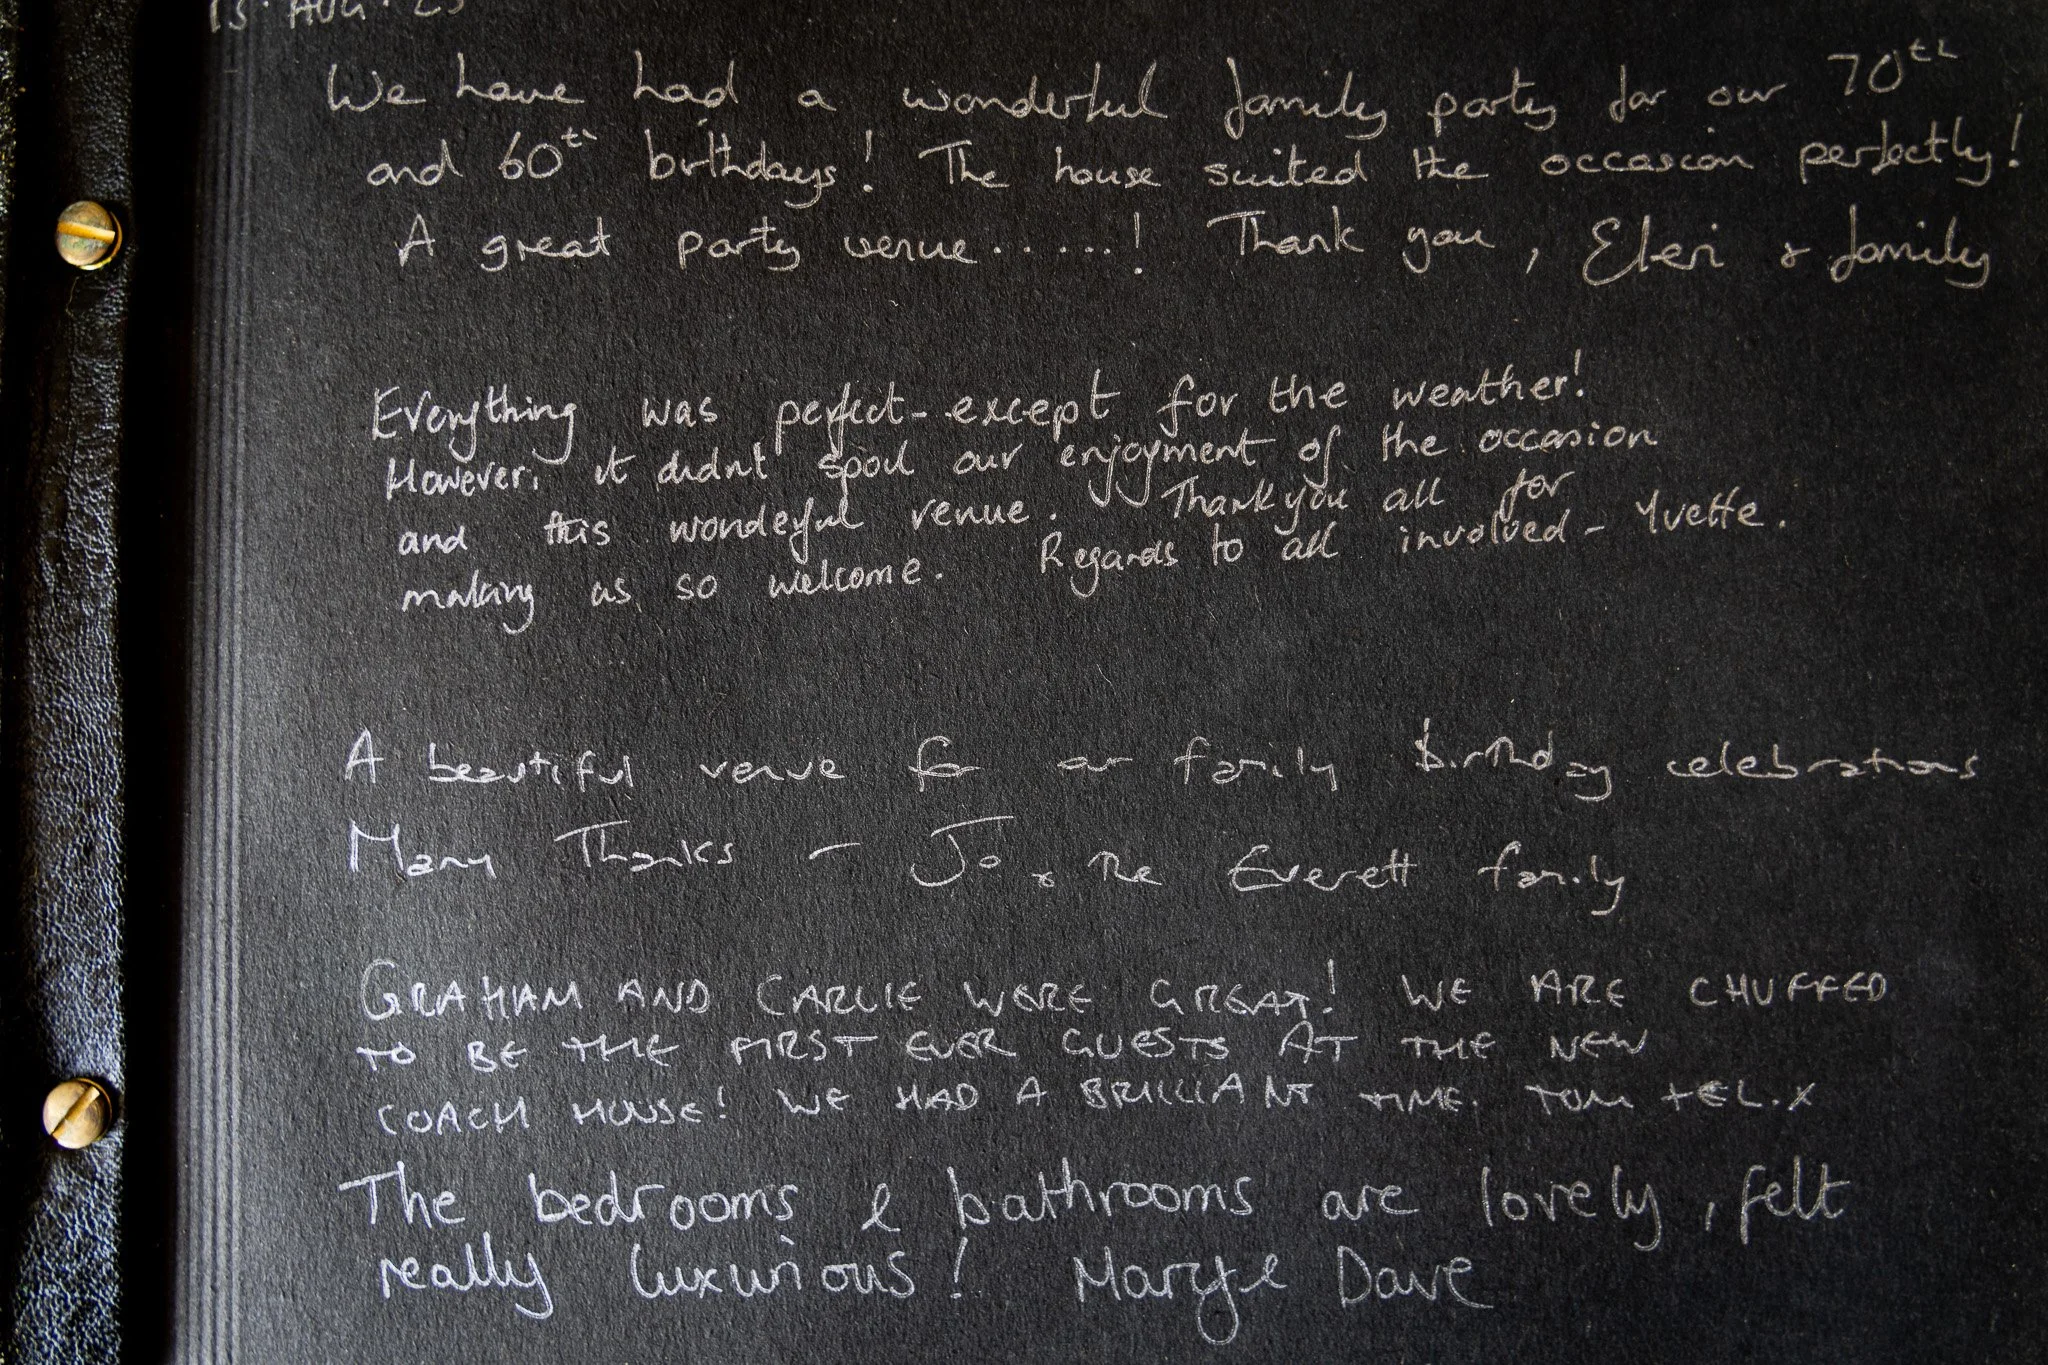 15. AUG. 23
We have had a wonderful family party for our 70th
and 60th birthdays! The house suited the occasion perfectly!
A great party venue......! Thank you, Eleri & family
Everything was perfect - except for the weather!
However, it didn't spoil our enjoyment of the occasion
and this wonderful venue. Thankyou all for
making us so welcome. Regards to all involved - Yvette.
A beautiful venue for our family birthday celebrations
Many Thanks - Jo & the Everett family
GRAHAM AND CARLIE WERE GREAT! WE ARE CHUFFED
TO BE THE FIRST EVER GUESTS AT THE NEW
COACH HOUSE! WE HAD A BRILLIANT TIME. TOM + EL. X
The bedrooms & bathrooms are lovely, felt
really luxurious! Dave